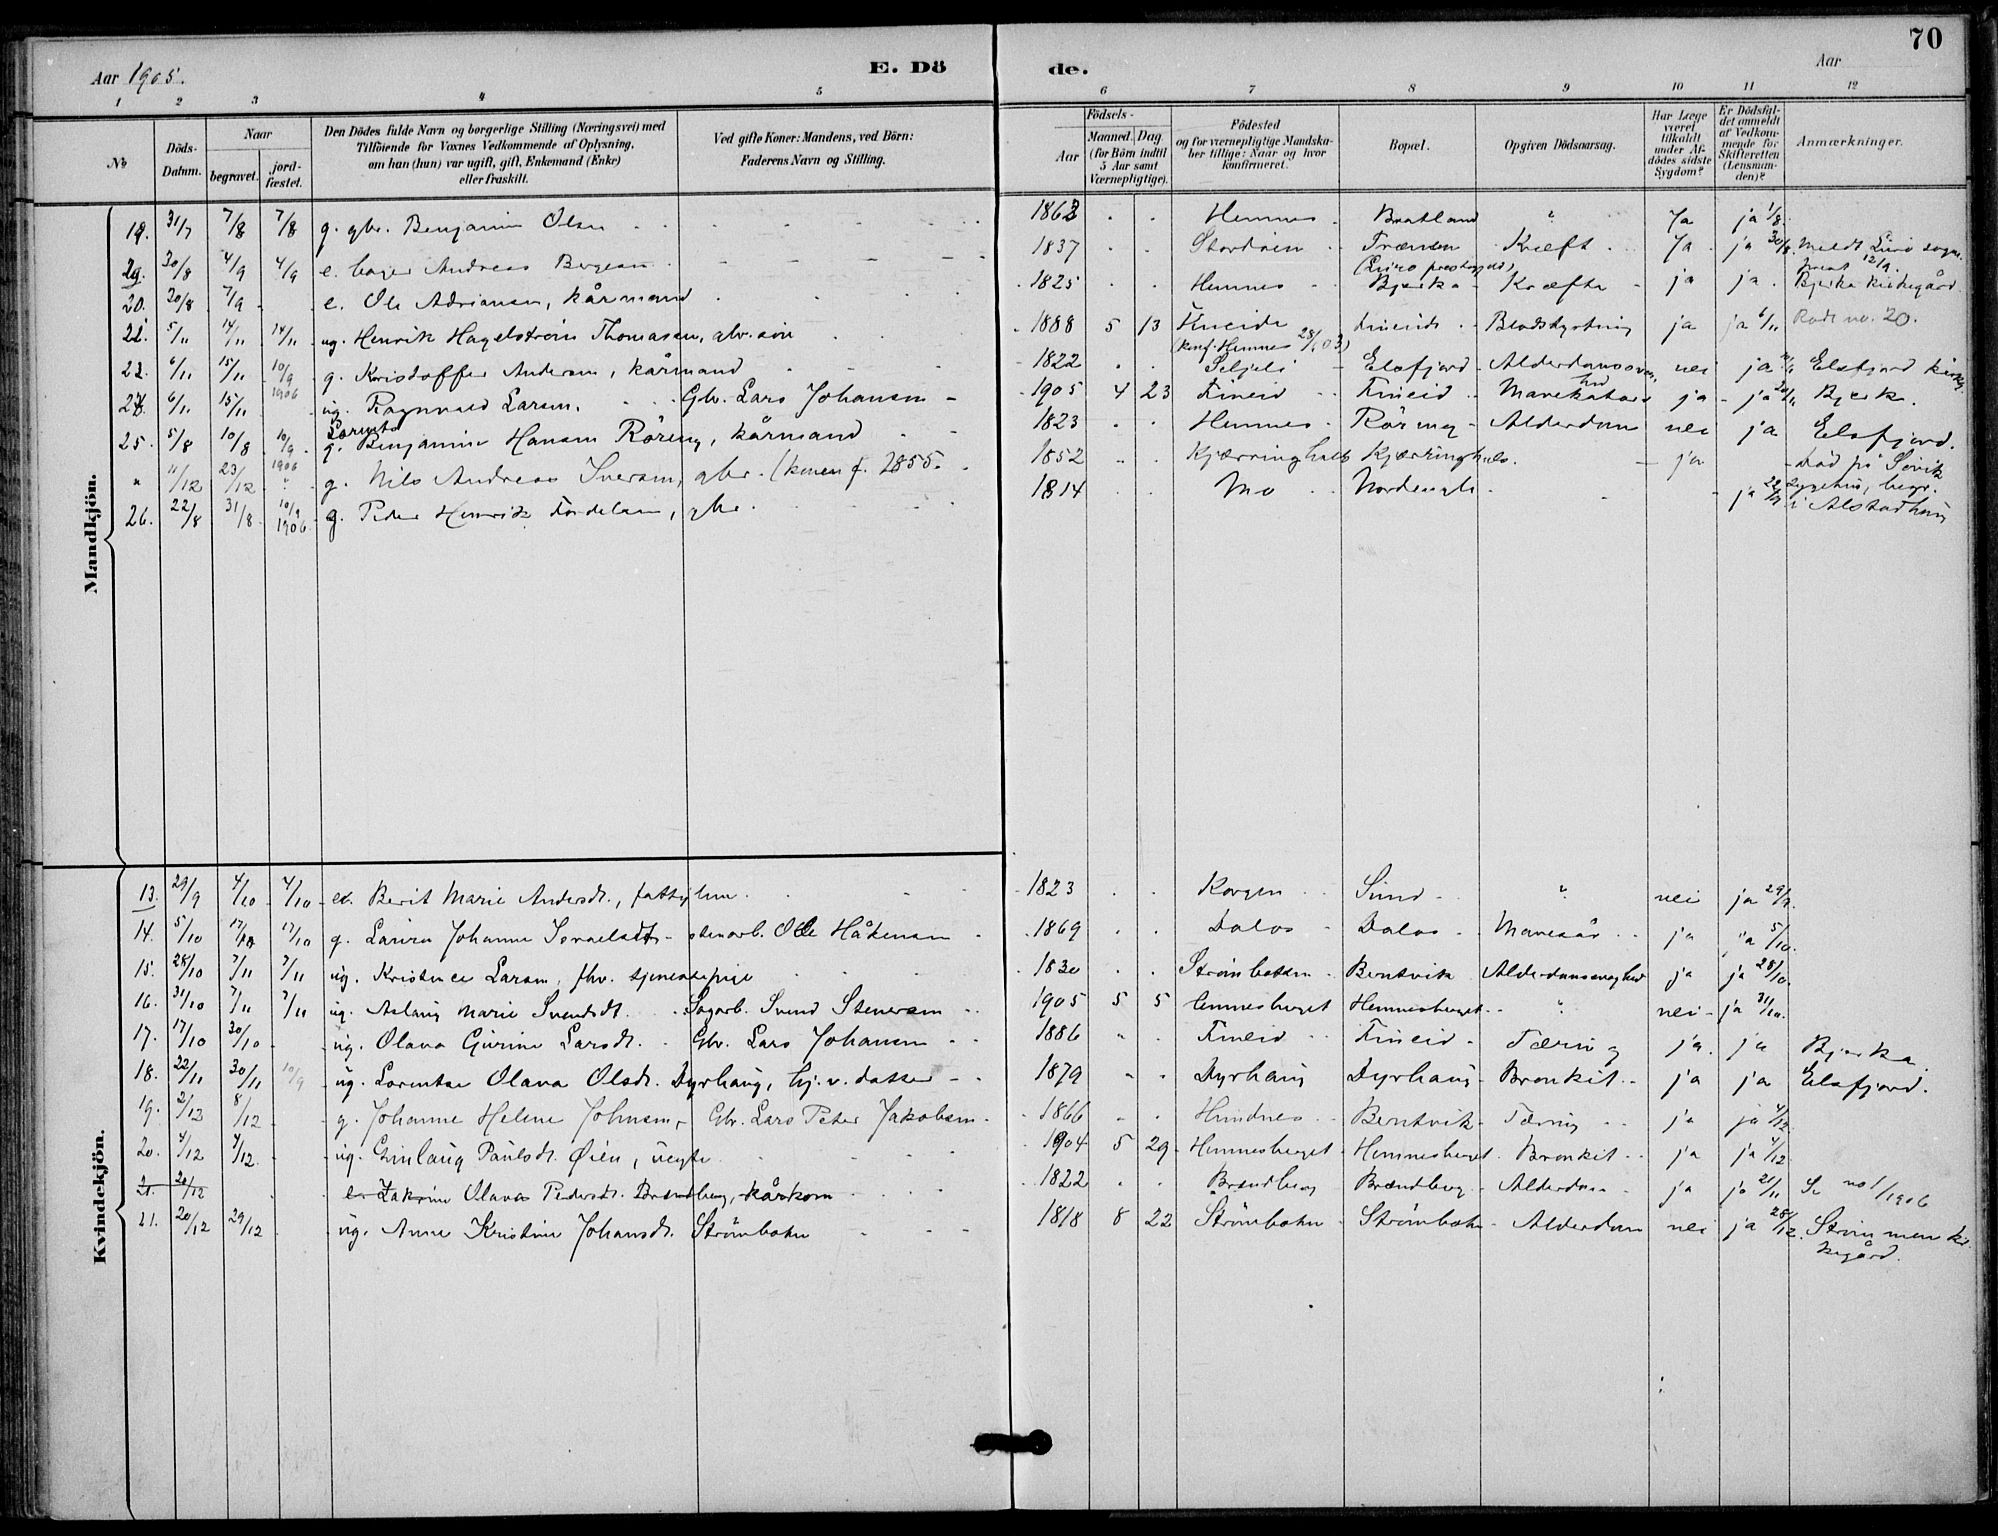 70
Aar 1905.
E. Dö de.
Aar
1 2 3 4 5 6 7 8 9 10 11 12
No
Döds-Datum.
Naar
begravet.
jord-fæstet.
Den Dödes fulde Navn og borgerlige Stilling (Næringsvei) med
Tilföiende for Voxnes Vedkommende af Oplysning,
om han (hun) var ugift, gift, Enkemand (Enke)
eller fraskilt.
Ved gifte Koner: Mandens, ved Börn:
Faderens Navn og Stilling.
Födsels-
Aar
Maaned. Dag.
(for Börn indtil
5 Aar samt
Værnepligtige).
Födested
og for værnepligtige Mandska-
ber tillige: Naar og hvor
konfirmeret.
Bopæl.
Opgiven Dödsaarsag.
Har Læge
været
tilkaldt
under Af-
dödes sidste
Sygdom?
Er Dödsfal-
det anmeldt
af Vedkom-
mende for
Skifteretten
(Lensman-
den)?
Anmærkninger.
Mandkjön.
19. 31/7 7/8 7/8 g. gbr. Benjamin Olsen 1863 Hemnes Bratland " Ja ja 1/8
30/8 4/9 4/9 e. Andreas 1837 Trænen Kræft Ja ja 30/8 Meldt Lurö
(Lurö prestegjeld) 12/9.
20. 20/8 7/9 e. Ole Adriansen, kårmand 1825 Hemnes Bjerka Kræfte ja ja Bjerka kirkegård
5/11 14/11 14/11 ug. Henrik Hagelström Thomasen, gbr. sön 1888 5 13 Fineide Fineide Blodstyrtning ja ja 6/11 no. 20.
(konf. Hemnes 28/ 03)
6/11 15/11 10/9 1906 g. Kristoffer Andersen, kårmand 1822 Seljeli Elsfjord nei ja Elsfjord
6/11 15/11 ug. Ragnvald Larsen. Gbr. Lars Johansen 1905 4 23 Fineid Fineid Mavekatar ja ja Bjerka.
25. 5/8 10/8 10/9 1906 g. Lorents Benjamin Hansen Röring, kårmand 1823 Hemnes Röring Alderdom nei ja Elsfjord.
" 11/12 23/12 " g. Nils Andreas Iversen, gbr. (konen f. 1855. 1852 Kjærringhals Kjærringhals. ja Död på Sövik
26. 22/8 31/8 10/9 1906 g. Peder Henrik gbr. 1814 Mo ja sygehus, begr.
i Alstadhaug
Kvindekjön.
13. 29/9 4/10 4/10 Berit Marie Andersdt., fattiglem. 1823 Korgen Sund " nei ja 29/9.
14. 5/10 17/10 17/10 g. Johanne Israelsdt. stenarb. Ole Håkensen 1869 Dalos Dalos Mavesår ja ja 5/10.
15. 28/10 7/11 7/11 ug. Kristence Larsen, fhv. tjenestepige 1830 Strömbotten Bentvik Alderdomssvaghed ja ja 28/10.
16. 31/10 7/11 7/11 ug. Aslaug Marie Svendsdt. Sagarb. Svend Stenersen 1905 5 5 Hemnesberget Hemnesberget " nei ja 31/10.
17. 17/10 30/10 ug. Olava Gurine Larsdt. Gbr. Lars Johansen 1886 Fineid Fineid Tæring ja ja Bjerka
18. 22/11 30/11 10/9 ug. Lorentse Olava Olsdt. Dyrhaug, hj.v. datter 1879 Dyrhaug Dyrhaug Bronkit ja ja Elsfjord.
19. 2/12 8/12 g. Johanne Helene Johnsen, Gbr. Lars Peter Jakobsen 1866 Hundnes Bentvik Tæring ja ja 4/12
20. 4/12 4/12 ug. Gunlaug Paulsdt. Öien, uegte 1904 5 29 Hemnesberget Hemnesberget Bronkit ja ja 4/12.
21. 20/12 e. Zakrine Olava Pedersdt. Brændberg, kårkone 1822 Brændberg Brændberg Alderdom ja ja 21/11 Se no 1/1906
21. 20/12 29/12 ug. Anne Kristine Johansdt. Strömbotn 1818 8 22 Strömbotn Strömbotn Alderdom nei ja 28/12. Ströinmen kir-
kegård.